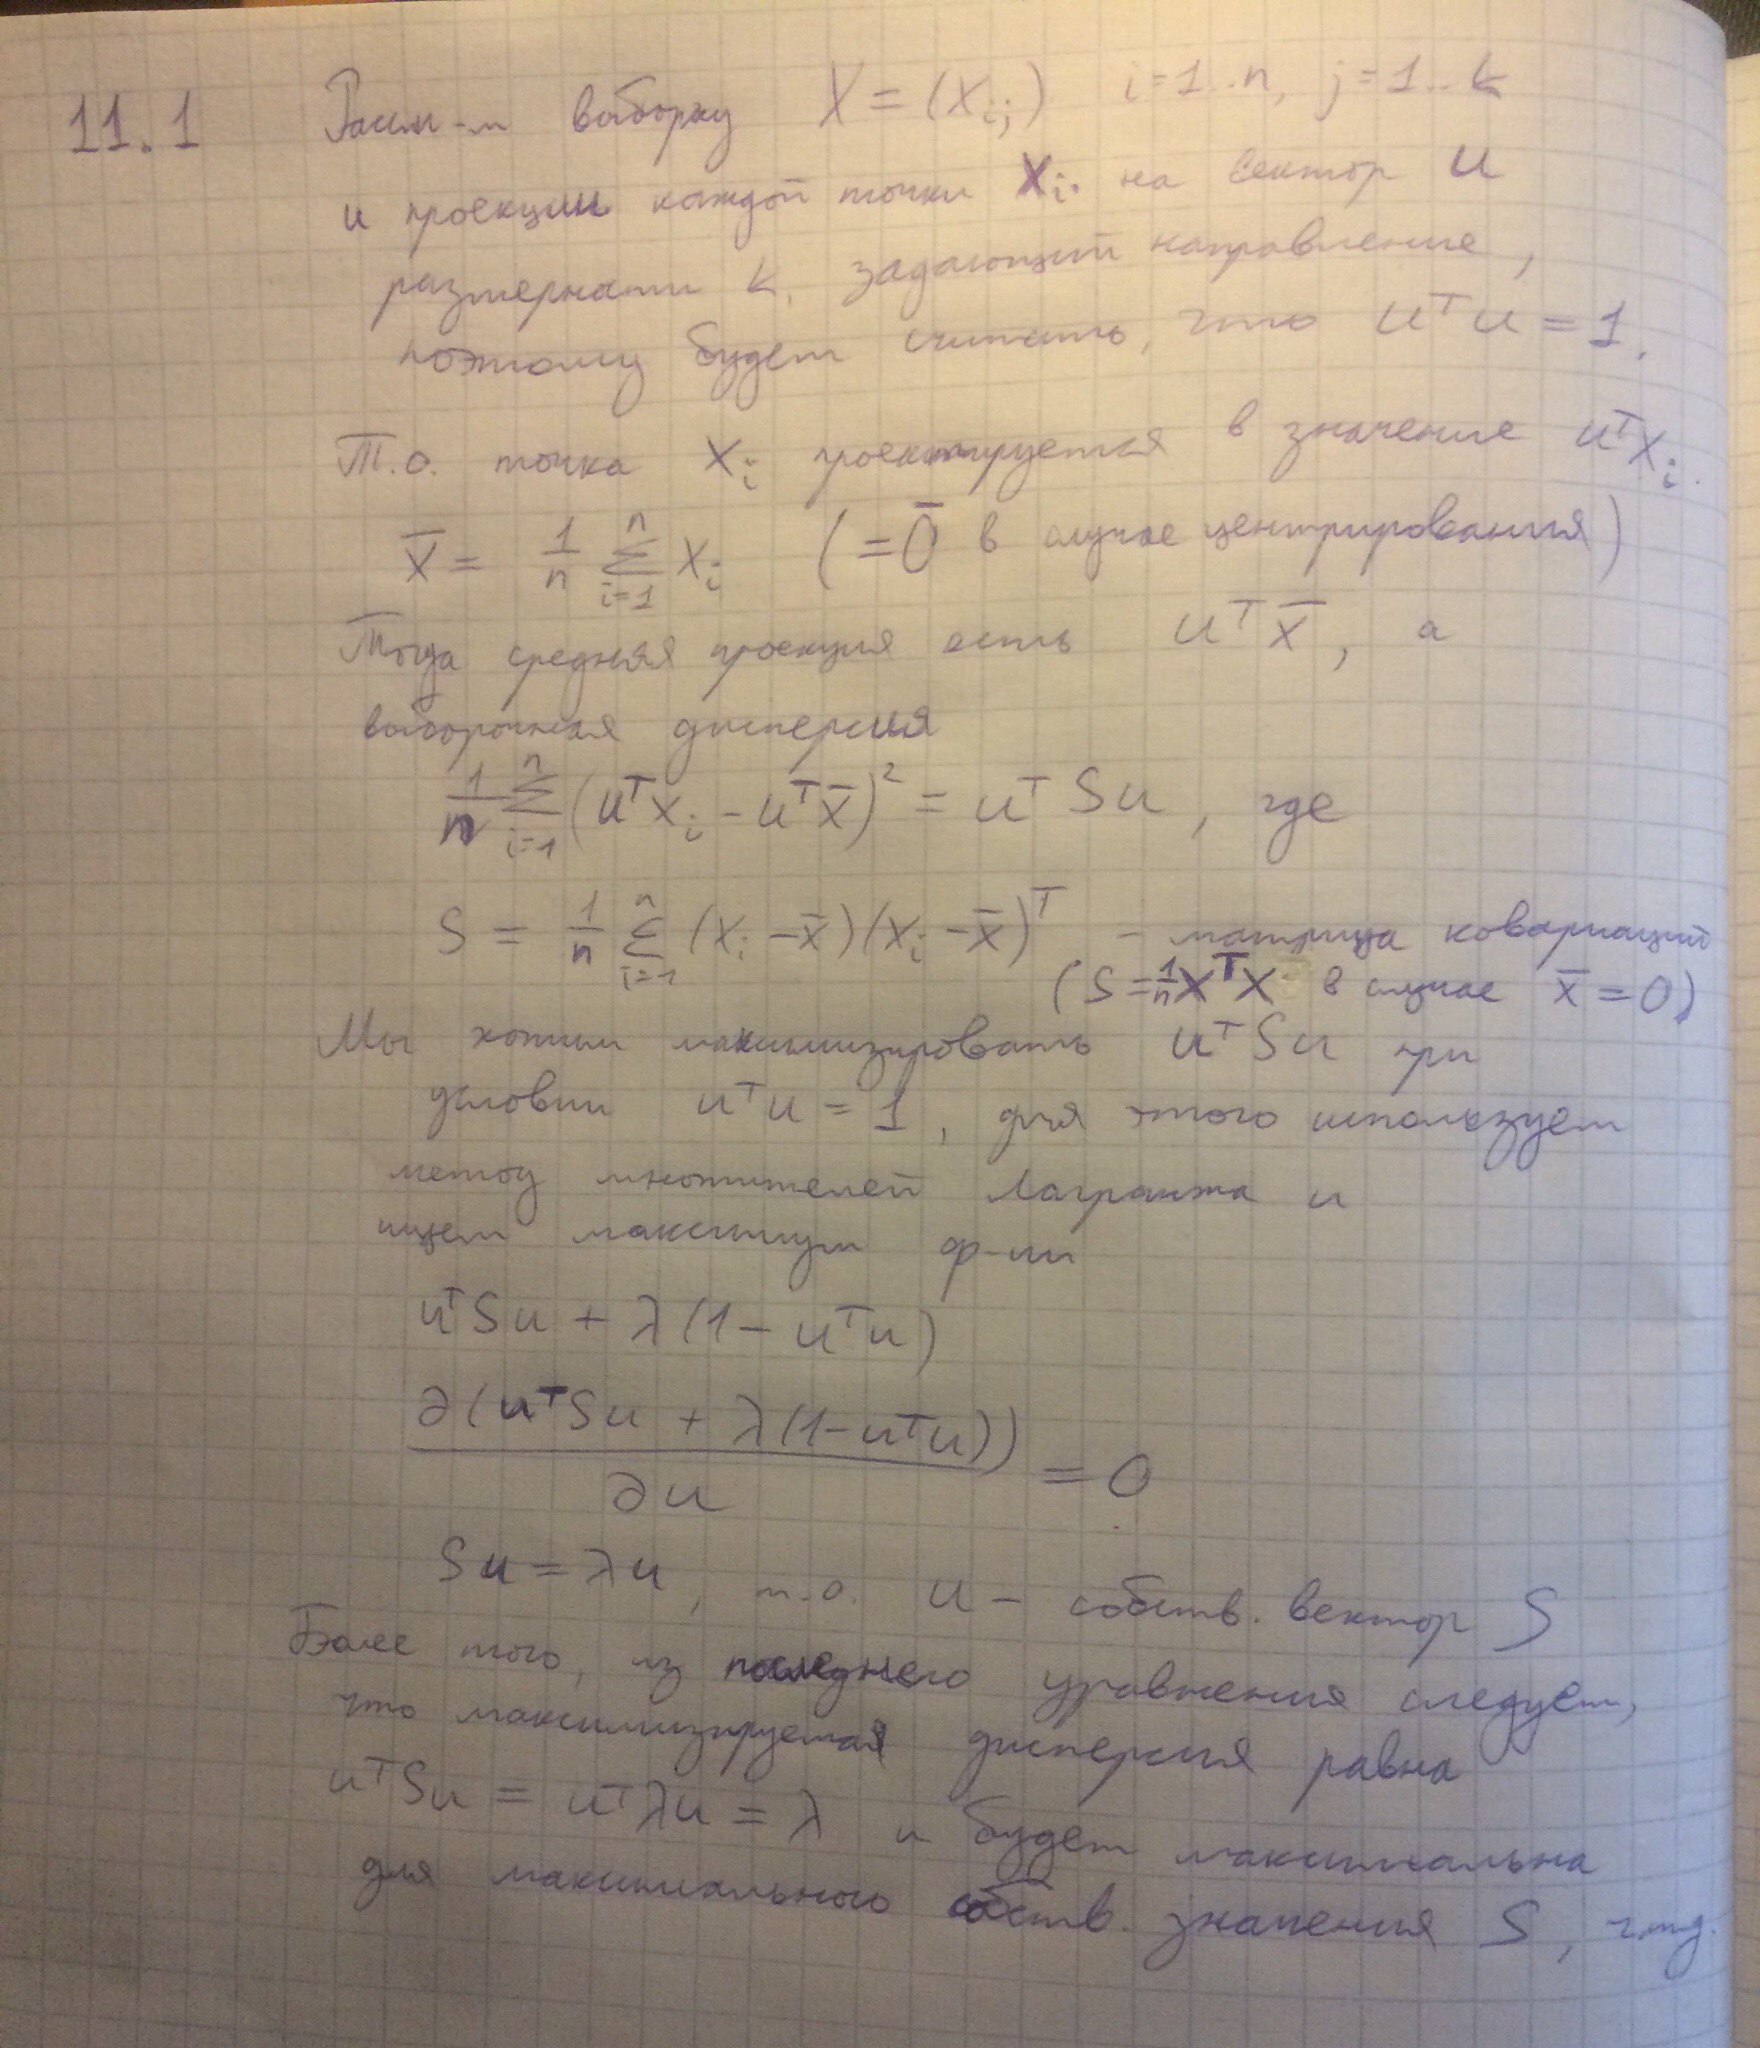 11.1 Рассм-м выборку X = (x_{ij}) i=1..n, j=1..k
и проекции каждой точки x_i на вектор u
размерности k, задающий направление,
поэтому будем считать, что u^T u = 1.
Т.о. точка x_i проектируется в значение u^T x_i.
x̄ = 1/n Σ_{i=1}^{n} x_i (= 0̄ в случае центрирования)
Тогда средняя проекция есть u^T x̄, а
выборочная дисперсия
1/n Σ_{i=1}^{n} (u^T x_i - u^T x̄)^2 = u^T S u, где
S = 1/n Σ_{i=1}^{n} (x_i - x̄)(x_i - x̄)^T - матрица ковариаций
(S = 1/n X^T X в случае x̄ = 0)
Мы хотим максимизировать u^T S u при
условии u^T u = 1, для этого используем
метод множителей Лагранжа и
ищем максимум ф-ии
u^T S u + λ(1 - u^T u)
∂(u^T S u + λ(1 - u^T u)) / ∂u = 0
Su = λu, т.о. u - собств. вектор S
Более того, из последнего уравнения следует,
что максимизируемая дисперсия равна
u^T S u = u^T λu = λ и будет максимальна
для максимального собств. значения S, чтд.